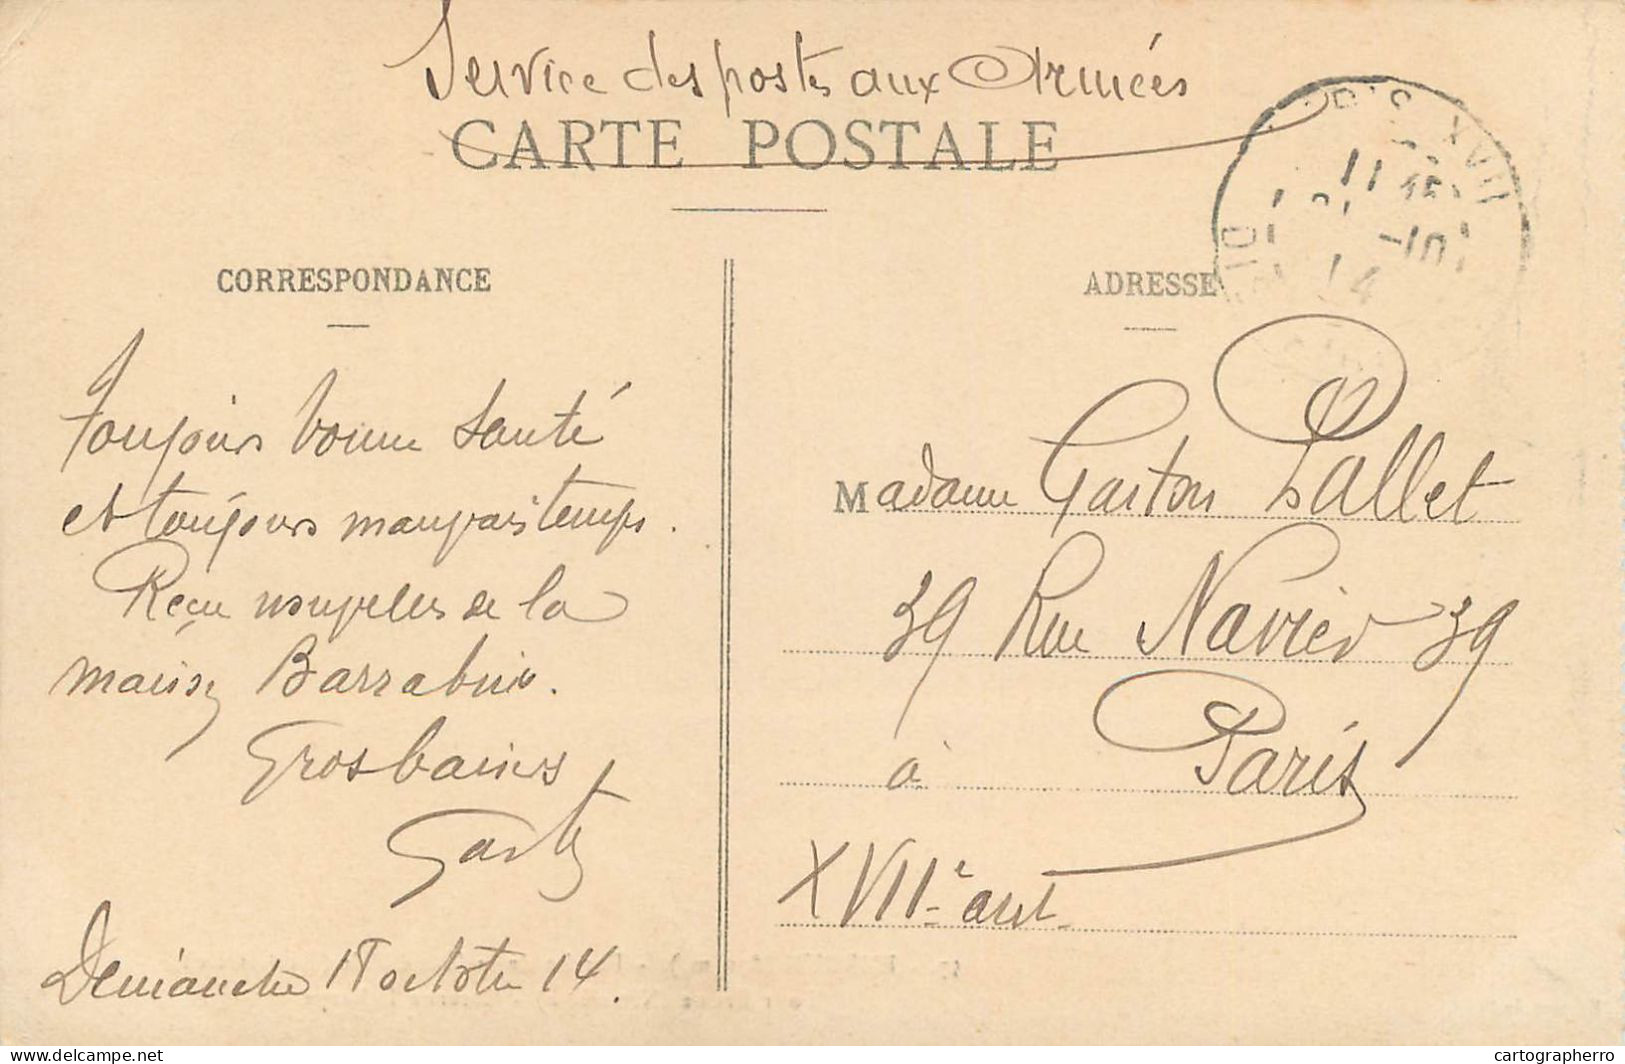 Service des postes aux Armées
CARTE POSTALE
CORRESPONDANCE
Toujours bonne Santé
et toujours mauvais temps.
Reçu nouvelles de la
maison
Gros baisers
Dimanche 18 octobre 14.
ADRESSE
Madame Gaston Pallet
39 Rue Navier 39
à Paris
XVIIe arrt
XVII
11 15
-10
14
delcampe.net
cartographerro